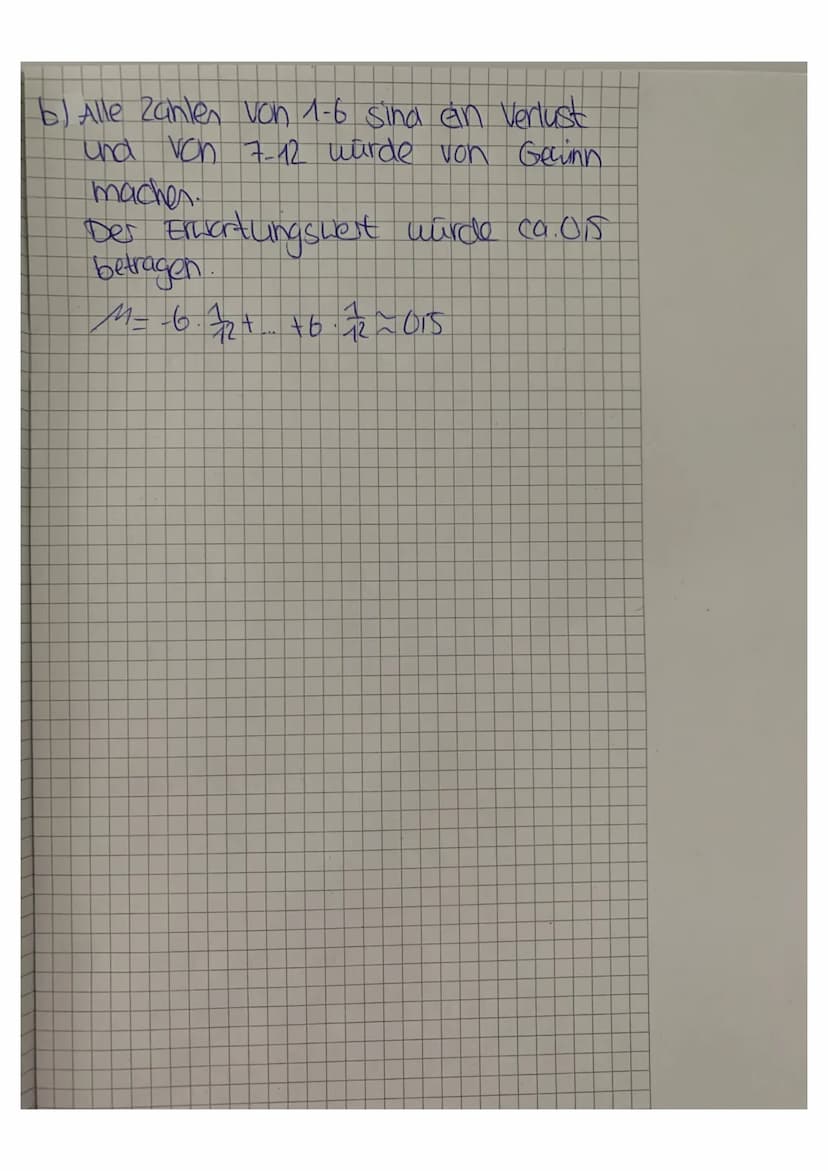 b) Alle Zahlen von 1-6 sind ein Verlust
und von 7-12 würde von Gewinn
machen.
Der Erwartungswert würde ca. 0,5
betragen.
μ = -6 · 1/12 + ... + 6 · 1/12 ≈ 0,5